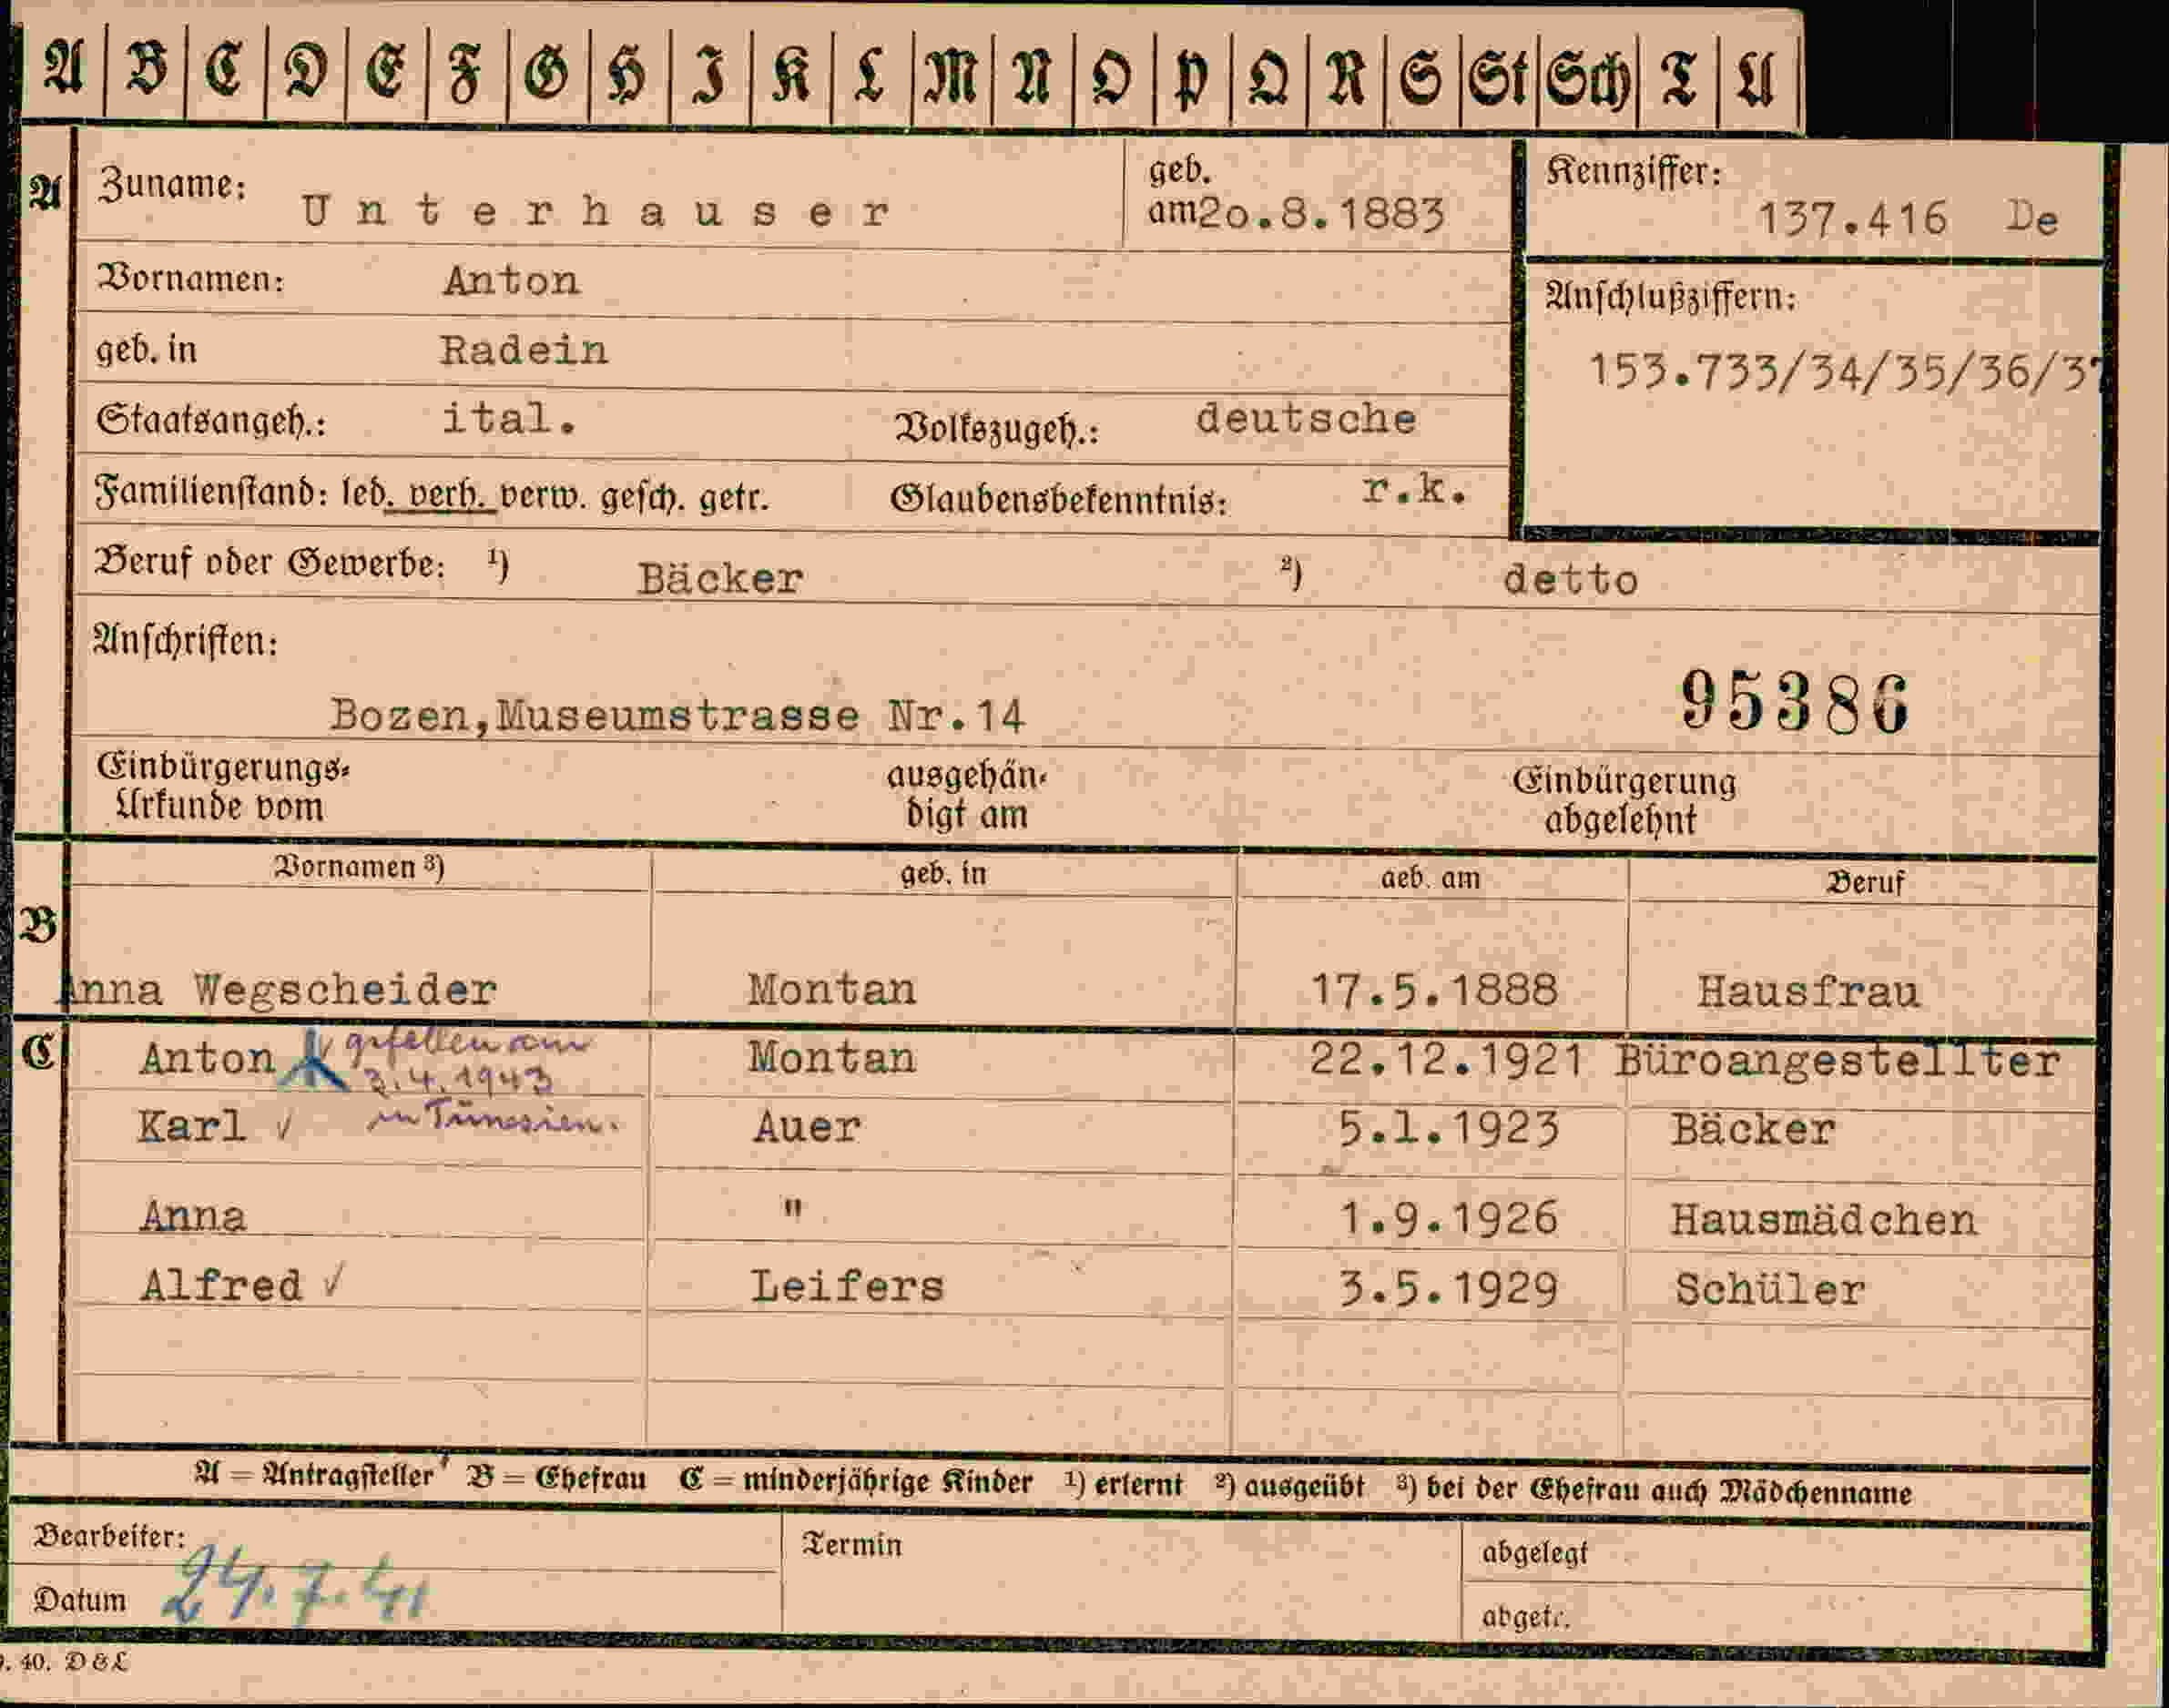 A B C D E F G H I K L M N O P Q R S St Sch T U
A Zuname: Unterhauser geb. am 20.8.1883 Kennziffer: 137.416 De
Vornamen: Anton
Anschlußziffern:
geb. in Radein
153.733/34/35/36/37
Staatsangeh.: ital. Volkszugeh.: deutsche
Familienstand: led. verh. verw. gesch. getr. Glaubensbekenntnis: r.k.
Beruf oder Gewerbe: 1) Bäcker 2) detto
Anschriften:
Bozen,Museumstrasse Nr.14 95386
Einbürgerungs- ausgehän- Einbürgerung
Urkunde vom digt am abgelehnt
Vornamen 3) geb. in geb. am Beruf
B
Anna Wegscheider Montan 17.5.1888 Hausfrau
C Anton gefallen am Montan 22.12.1921 Büroangestellter
3.4.1943
Karl in Tunesien. Auer 5.1.1923 Bäcker
Anna " 1.9.1926 Hausmädchen
Alfred Leifers 3.5.1929 Schüler
A = Antragsteller B = Ehefrau C = minderjährige Kinder 1) erlernt 2) ausgeübt 3) bei der Ehefrau auch Mädchenname
Bearbeiter: Termin abgelegt
Datum 24.7.41 abgetr.
. 40. D & L